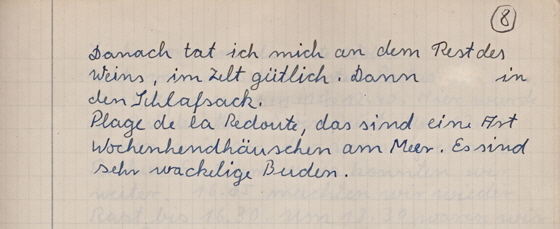 8
Danach tat ich mich an dem Rest des
Weins im Zelt gütlich. Dann in
den Schlafsack.
Plage de la Redoute, das sind eine Art
Wochenhendhäuschen am Meer. Es sind
sehr wackelige Buden.